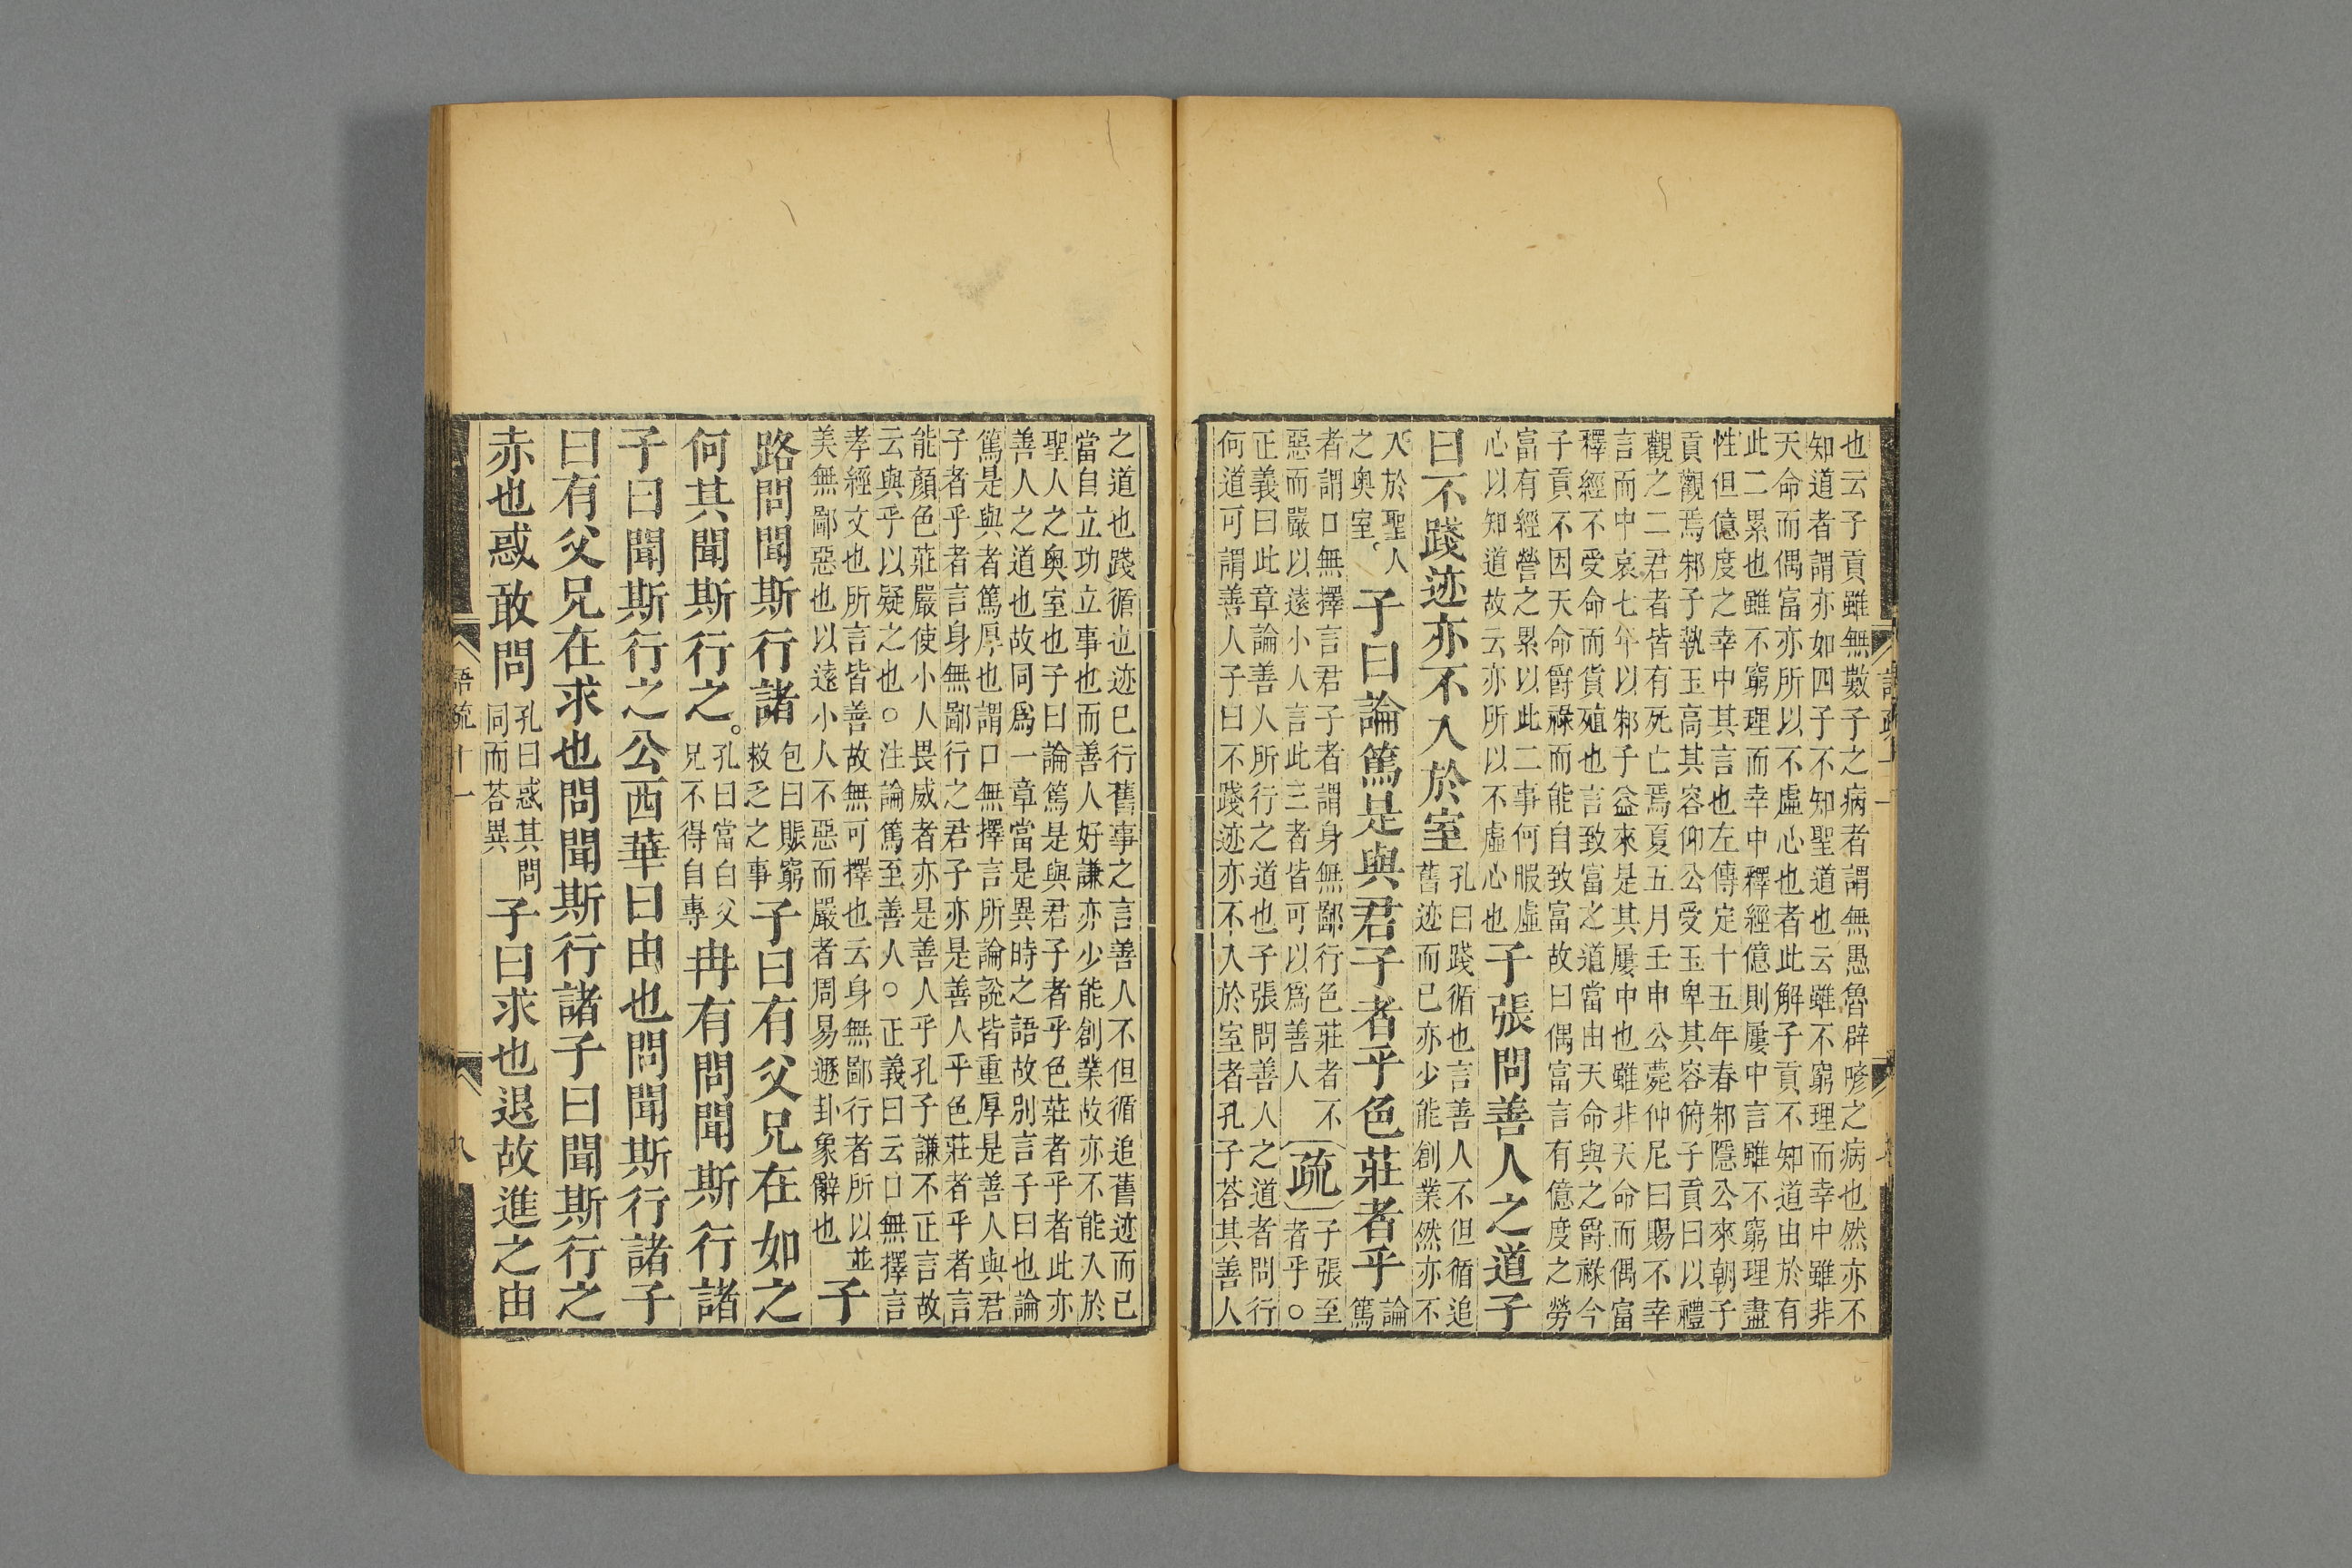 也云子貢雖無數子之病者謂無愚魯辟喭之病也然亦不
知道者謂亦如四子不知聖道也云雖不窮理而幸中雖非
天命而偶富亦所以不虛心也者此解子貢不知道由於有
此二累也雖不窮理而幸中釋經億則屢中言雖不窮理盡
性但億度之幸中其言也左傳定十五年春邾隱公來朝子
貢觀焉邾子執玉高其容仰公受玉卑其容俯子貢曰以禮
觀之二君者皆有死亡焉夏五月壬申公薨仲尼曰賜不幸
言而中哀七年以邾子益來是其屢中也雖非天命而偶富
釋經不受命而貨殖也言致富之道當由天命與之爵祿今
子貢不因天命爵祿而能自致富故曰偶富言有億度之勞
富有經營之累以此二事何暇虛
心以知道故云亦所以不虛心也
子張問善人之道子
曰不踐迹亦不入於室
孔曰踐循也言善人不但循追
舊迹而已亦少能創業然亦不
入於聖人
之奧室、
子曰論篤是與君子者乎色莊者乎
論
篤
者謂口無擇言君子者謂身無鄙行色莊者不
惡而嚴以遠小人言此三者皆可以爲善人
疏
子張至
者乎○
正義曰此章論善人所行之道也子張問善人之道者問行
何道可謂善人子曰不踐迹亦不入於室者孔子荅其善人
之道也踐循也迹已行舊事之言善人不但循追舊迹而已
當自立功立事也而善人好謙亦少能創業故亦不能入於
聖人之奧室也子曰論篤是與君子者乎色莊者乎者此亦
善人之道也故同爲一章當是異時之語故別言子曰也論
篤是與者篤厚也謂口無擇言所論說皆重厚是善人與君
子者乎者言身無鄙行之君子亦是善人乎色莊者乎者言
能顏色莊嚴使小人畏威者亦是善人乎孔子謙不正言故
云與乎以疑之也○注論篤至善人○正義曰云口無擇言
孝經文也所言皆善故無可擇也云身無鄙行者所以並
美無鄙惡也以遠小人不惡而嚴者周易遯卦象辭也
子
路問聞斯行諸
包曰賑窮
救乏之事
子曰有父兄在如之
何其聞斯行之。
孔曰當白父
兄不得自專
冉有問聞斯行諸
子曰聞斯行之公西華曰由也問聞斯行諸子
曰有父兄在求也問聞斯行諸子曰聞斯行之
赤也惑敢問
孔曰惑其問
同而荅異
子曰求也退故進之由
語疏十一
九